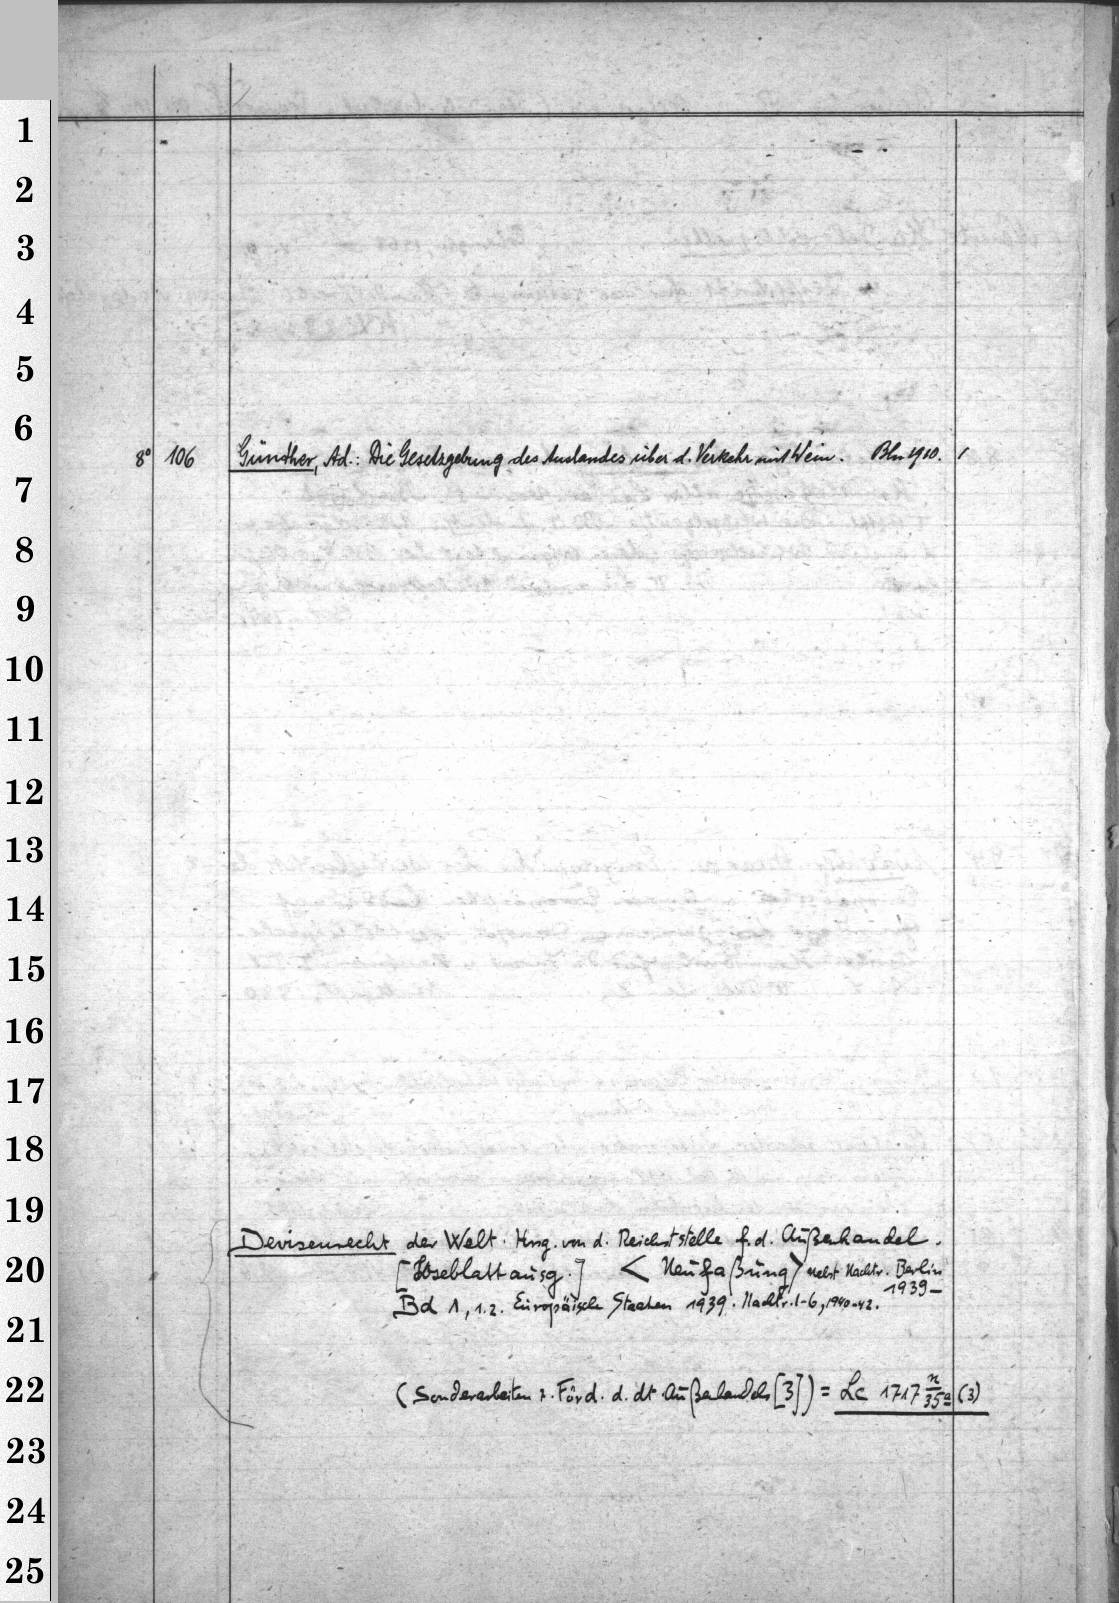 1
2
3
4
5
6
8° 106 Günther, Ad.: Die Gesetzgebung des Auslandes über d. Verkehr mit Wein. Bln 1910. 1
7
8
9
10
11
12
13
14
15
16
17
18
19
Devisenrecht der Welt. Hrsg. von d. Reichsstelle f. d. Außenhandel.
20
[Loseblattausg.] <Neufaßung> nebst Nachtr. Berlin
1939–
Bd 1, 1.2. Europäische Staaten 1939. Nachtr. 1-6, 1940-42.
21
22
(Sonderarbeiten z. Förd. d. dt Außenhandels [3]) = Lc 1717 n/35a (3)
23
24
25